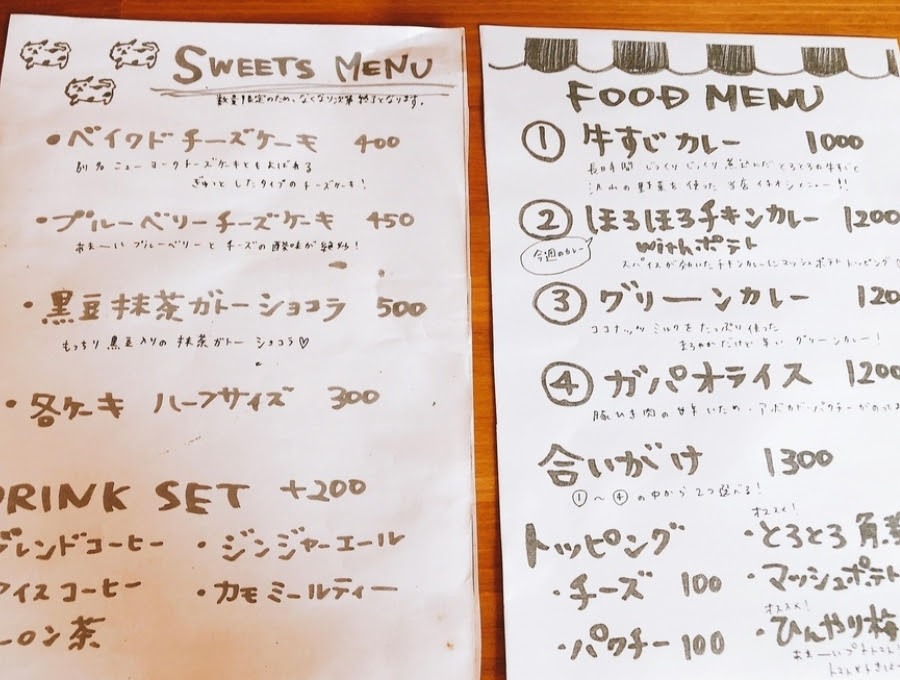 SWEETS MENU
数量限定のため、なくなり次第終了となります。
・ベイクドチーズケーキ 400
別名ニューヨークチーズケーキともよばれる
ぎゅっとしたタイプのチーズケーキ!
・ブルーベリーチーズケーキ 450
あまーいブルーベリーとチーズの酸味が絶妙!
・黒豆抹茶ガトーショコラ 500
もっちり黒豆入りの抹茶ガトーショコラ♡
・各ケーキ ハーフサイズ 300
DRINK SET +200
ブレンドコーヒー ・ジンジャーエール
アイスコーヒー ・カモミールティー
ーロン茶
FOOD MENU
① 牛すじカレー 1000
長時間じっくりじっくり煮込んだとろとろの牛すじと
沢山の野菜を使った当店イチオシメニュー!!
② ほろほろチキンカレー 1200
withポテト
今週のカレー
スパイスが効いたチキンカレーにマッシュポテトトッピング
③ グリーンカレー 120
ココナッツミルクをたっぷり使った
まろやかだけど辛いグリーンカレー!
④ ガパオライス 1200
豚ひき肉の甘辛いため・アボカド・パクチーがのって
合いがけ 1300
①〜④の中から2つ選べる!
トッピング
・チーズ 100
・パクチー 100
オススメ!
・とろとろ角
・マッシュポテト
オススメ!
・ひんやり梅
あまーいプチトマト